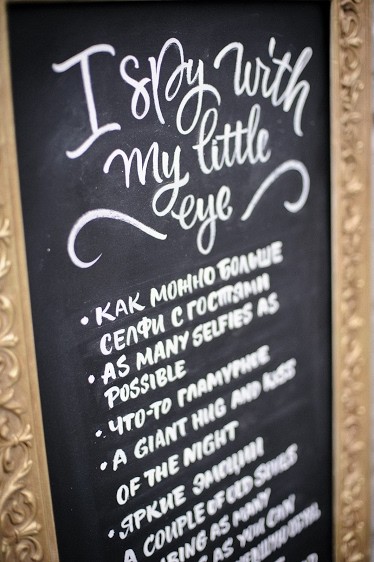 I spy with
my little
eye
• КАК МОЖНО БОЛЬШЕ
СЕЛФИ С ГОСТЯМИ
• AS MANY SELFIES AS
POSSIBLE
• ЧТО-ТО ГЛАМУРНОЕ
• A GIANT HUG AND KISS
OF THE NIGHT
• ЯРКИЕ ЭМОЦИИ
A COUPLE OF OLD
AS MANY
AS YOU CAN